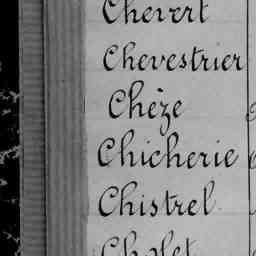 Chevert
Chevestrier
Chèze
Chicherie
Chistrel
Cholet